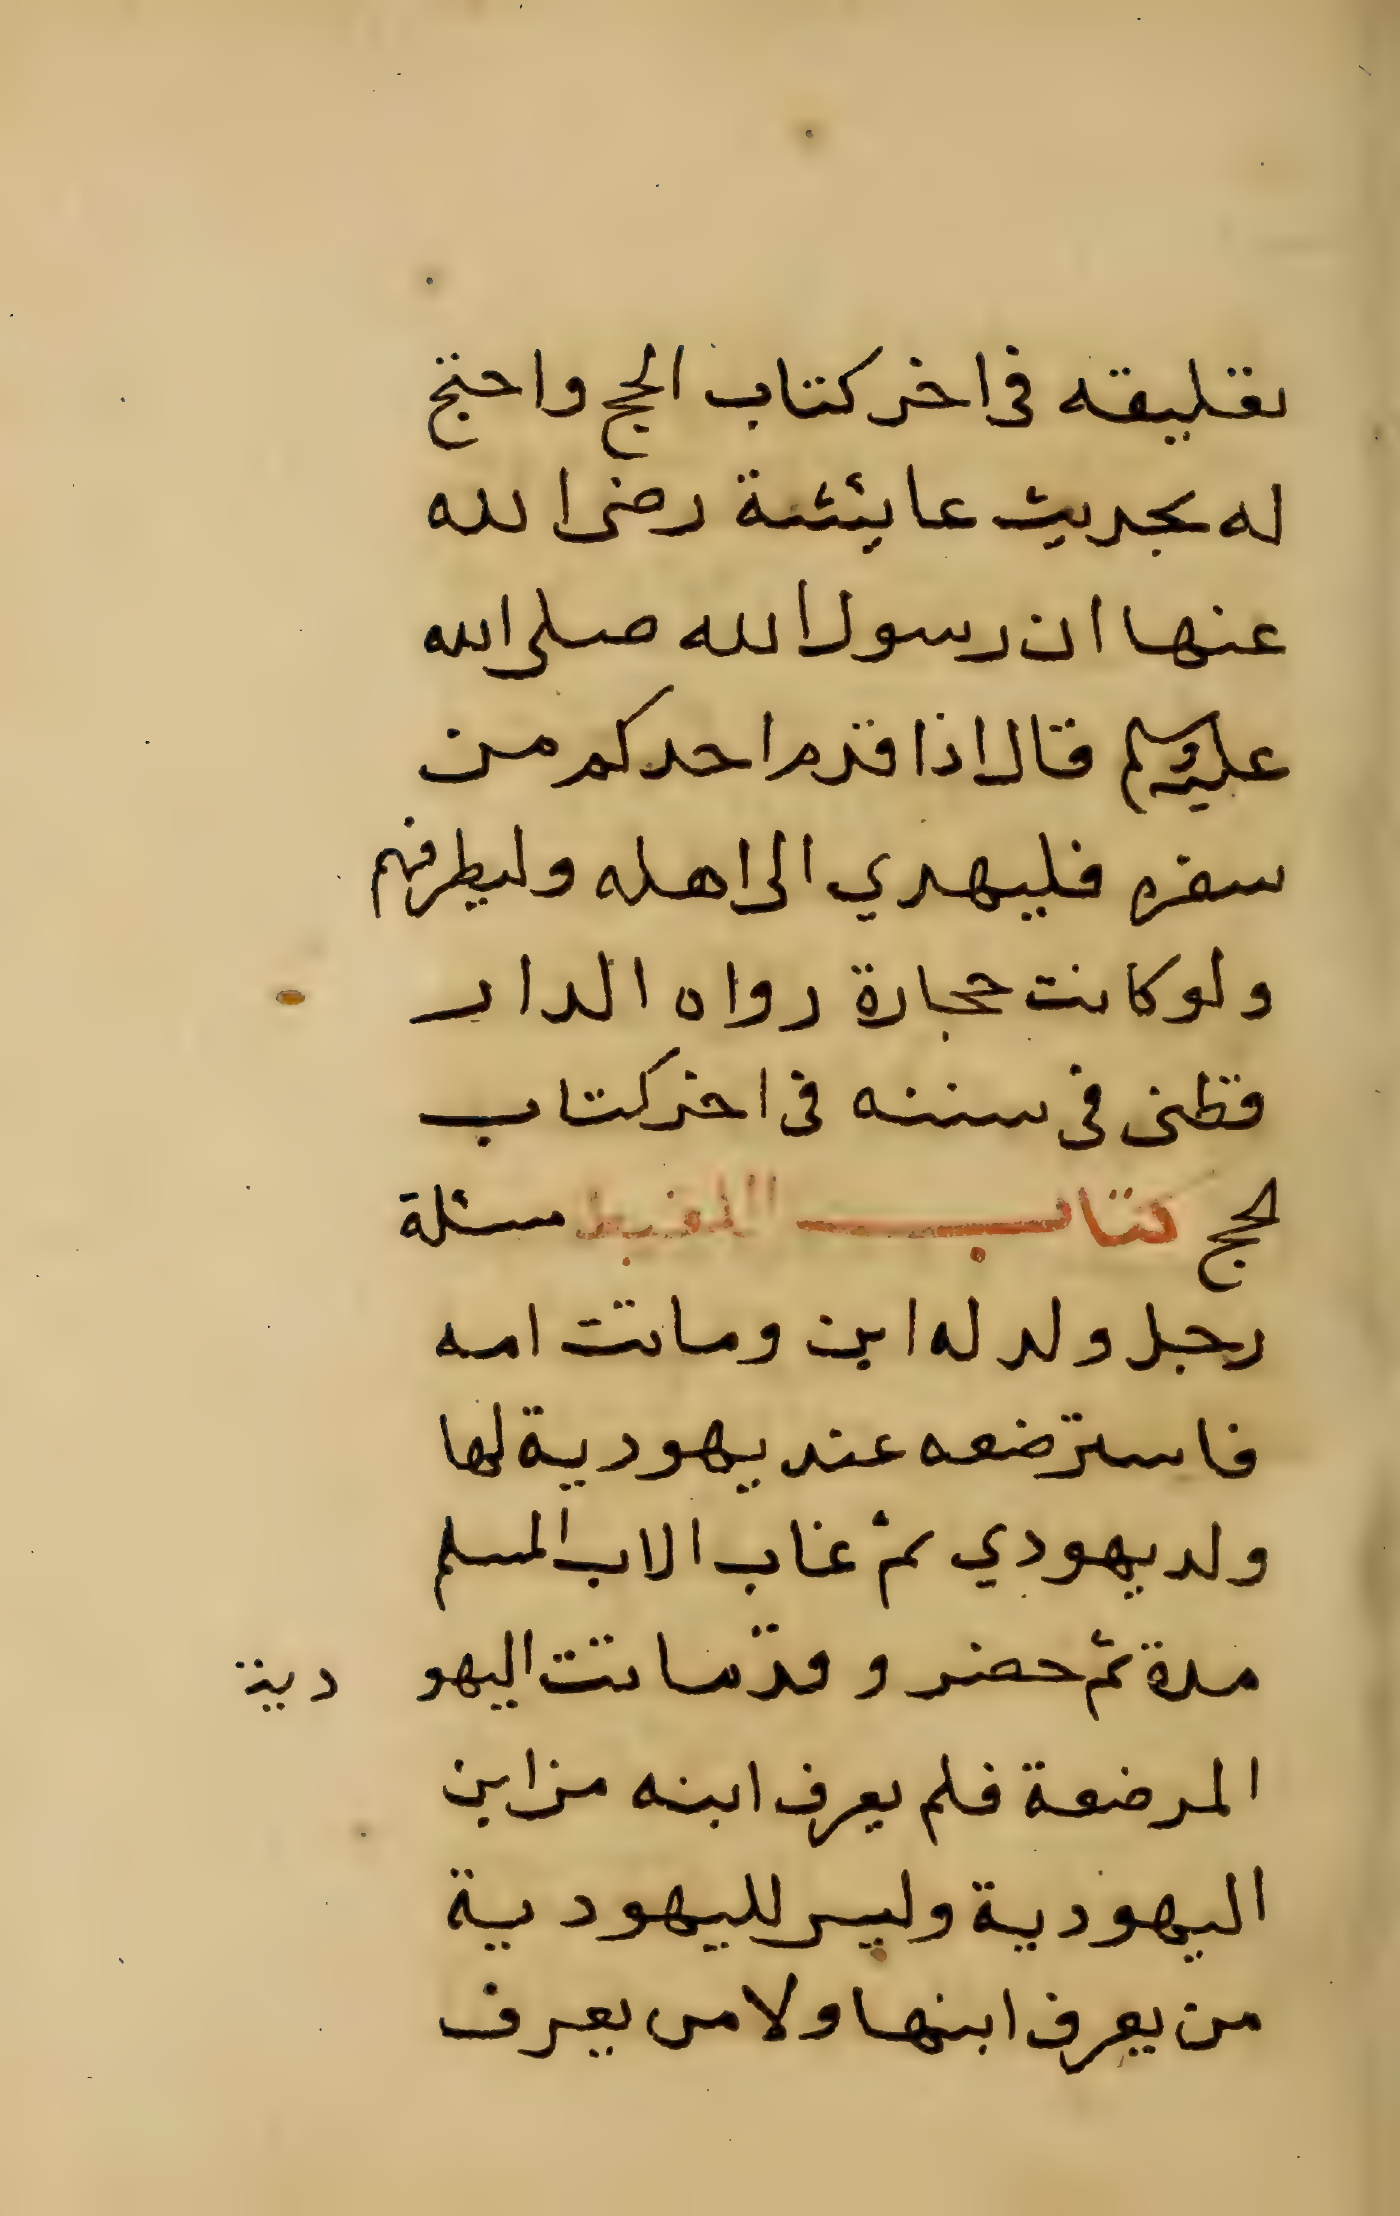 تعليقه فى اخر كتاب الحج واحتج
له بحديث عايئشة رضى الله
عنها ان رسول الله صلى الله
عليه وسلم قال اذا قدم احدكم من
سفره فليهدي الى اهله وليطرفهم
ولو كانت حجارة رواه الدار
قطنى فى سننه فى اخر كتاب
لحج كتاب اللقيط مسئلة
رجل ولد له ابن وماتت امه
فاسترضعه عند يهودية لها
ولد يهودي ثم غاب الاب المسلم
مدة ثم حضر وقد ماتت اليهو دية
المرضعة فلم يعرف ابنه من ابن
اليهودية وليس لليهودية
من يعرف ابنها ولا من يعرف